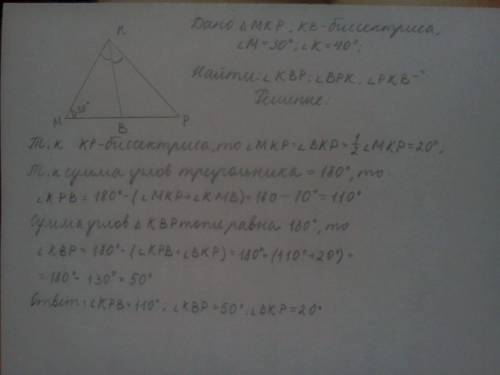 Дано △MKP, KB-биссектриса,
∠M=50°; ∠K=40°;
Найти: ∠KBP; ∠BPK, ∠PKB-?
Решение:
K
M
50°
B
P
Т.к KP-биссектриса, то ∠MKP=∠BKP=1/2∠MKP=20°,
Т.к сумма углов треугольника = 180°, то
∠KPB = 180°-(∠MKP+∠KMB)=180-70°=110°
Сумма углов △KBP тоже равна 180°, то
∠KBP = 180°-(∠KPB+∠BKP)=180°-(110°+20°)=
=180°-130°=50°
Ответ: ∠KPB=110°; ∠KBP=50°; ∠BKP=20°